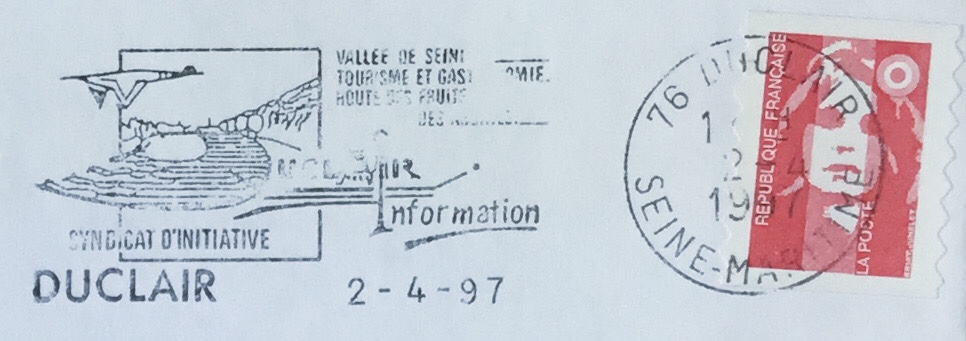 VALLEE DE SEINE
TOURISME ET GAST OMIE.
ROUTE DES FRUITS
DES
Information
SYNDICAT D'INITIATIVE
DUCLAIR
2-4-97
76 DUCLAIR
2-4
1997
SEINE-MARITIME
REPUBLIQUE FRANÇAISE
LA POSTE